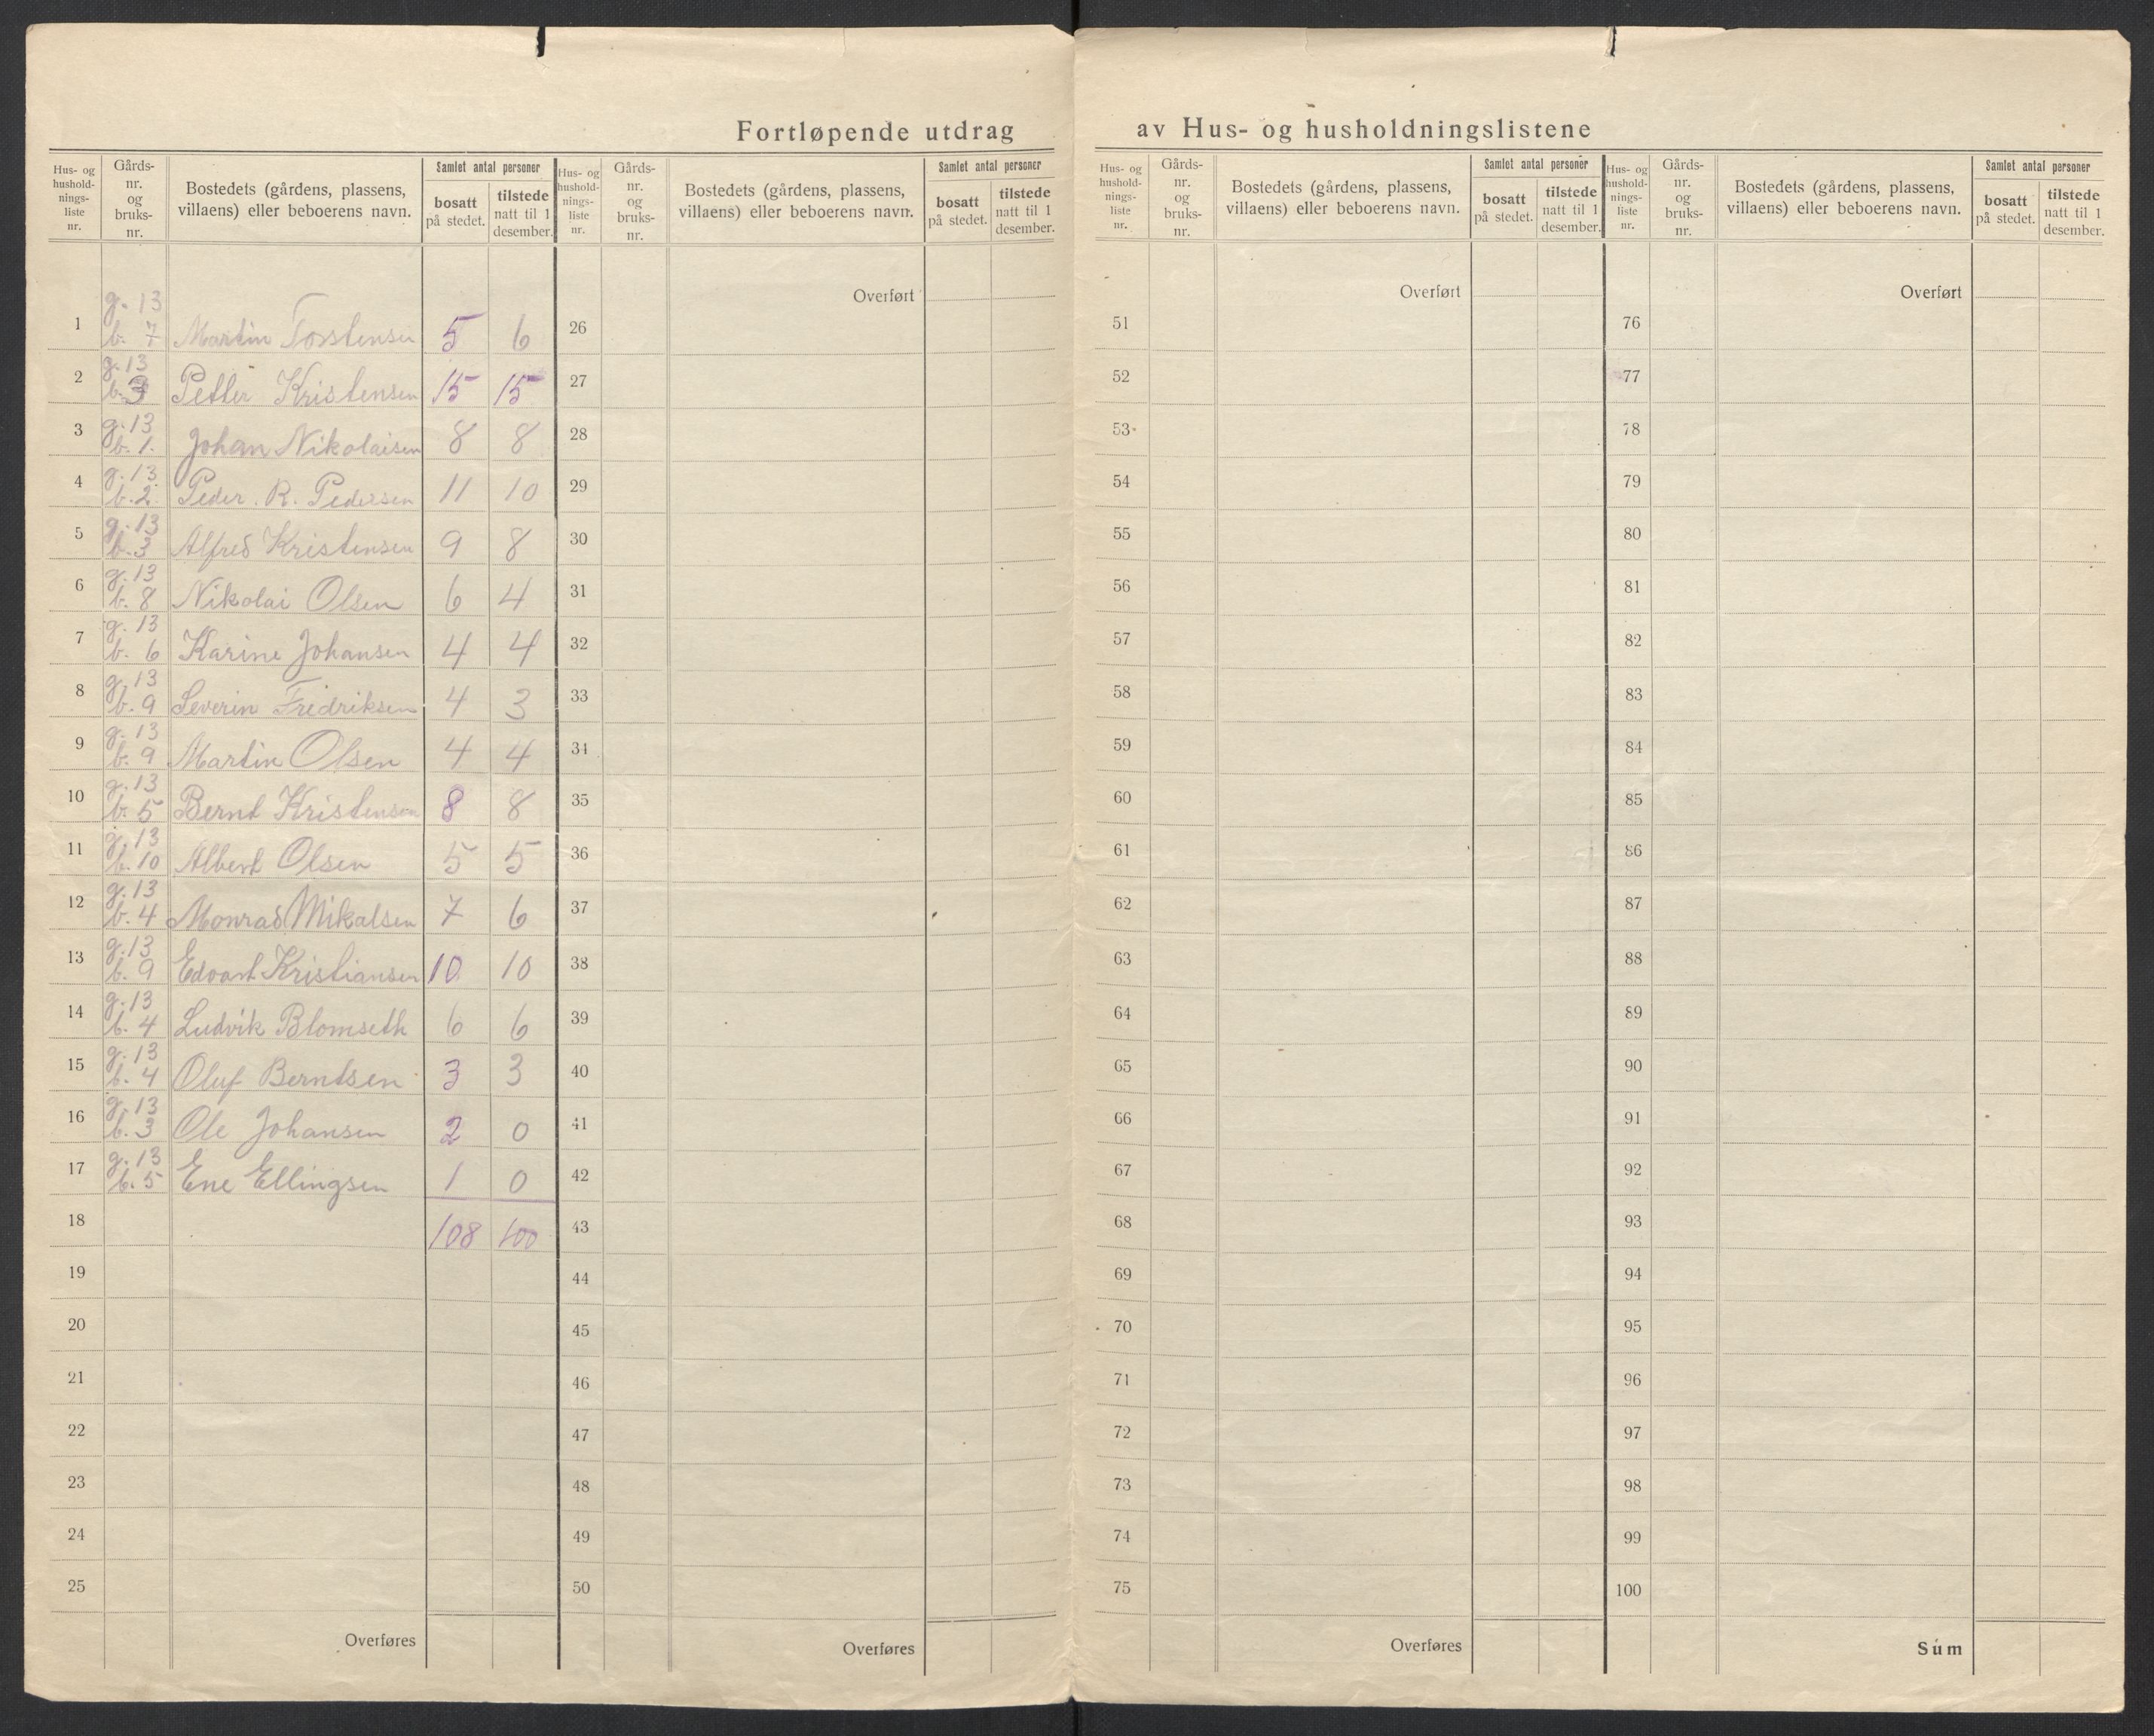 Fortløpende utdrag av Hus- og husholdningslistene
Hus- og hushold- nings- liste nr. Gårds- nr. og bruks- nr. Bostedets (gårdens, plassens, villaens) eller beboerens navn. Samlet antal personer bosatt på stedet. tilstede natt til 1 desember.
Hus- og hushold- nings- liste nr. Gårds- nr. og bruks- nr. Bostedets (gårdens, plassens, villaens) eller beboerens navn. Samlet antal personer bosatt på stedet. tilstede natt til 1 desember.
Hus- og hushold- nings- liste nr. Gårds- nr. og bruks- nr. Bostedets (gårdens, plassens, villaens) eller beboerens navn. Samlet antal personer bosatt på stedet. tilstede natt til 1 desember.
Hus- og hushold- nings- liste nr. Gårds- nr. og bruks- nr. Bostedets (gårdens, plassens, villaens) eller beboerens navn. Samlet antal personer bosatt på stedet. tilstede natt til 1 desember.
1 g. 13 b. 7 Martin Torstensen 5 6
2 g. 13 b. 3 Petter Kristensen 15 15
3 g. 13 b. 1. Johan Nikolaisen 8 8
4 g. 13. b. 2. Peder. R. Pedersen 11 10
5 g. 13 b. 3 Alfred Kristensen 9 8
6 g. 13 b. 8 Nikolai Olsen 6 4
7 g. 13 b. 6 Karine Johansen 4 4
8 g. 13 b. 9 Severin Fredriksen 4 3
9 g. 13 b. 9 Martin Olsen 4 4
10 g. 13 b. 5 Bernt Kristensen 8 8
11 g. 13 b. 10 Albert Olsen 5 5
12 g. 13 b. 4 Monrad Mikalsen 7 6
13 g. 13 b. 9 Edvart Kristiansen 10 10
14 g. 13 b. 4 Ludvik Blomseth 6 6
15 g. 13 b. 4 Oluf Berntsen 3 3
16 g. 13 b. 3 Ole Johansen 2 0
17 g. 13 b. 5 Ene Ellingsen 1 0
18 108 100
19
20
21
22
23
24
25
Overføres
Overført
26
27
28
29
30
31
32
33
34
35
36
37
38
39
40
41
42
43
44
45
46
47
48
49
50
Overføres
Overført
51
52
53
54
55
56
57
58
59
60
61
62
63
64
65
66
67
68
69
70
71
72
73
74
75
Overføres
Overført
76
77
78
79
80
81
82
83
84
85
86
87
88
89
90
91
92
93
94
95
96
97
98
99
100
Sum